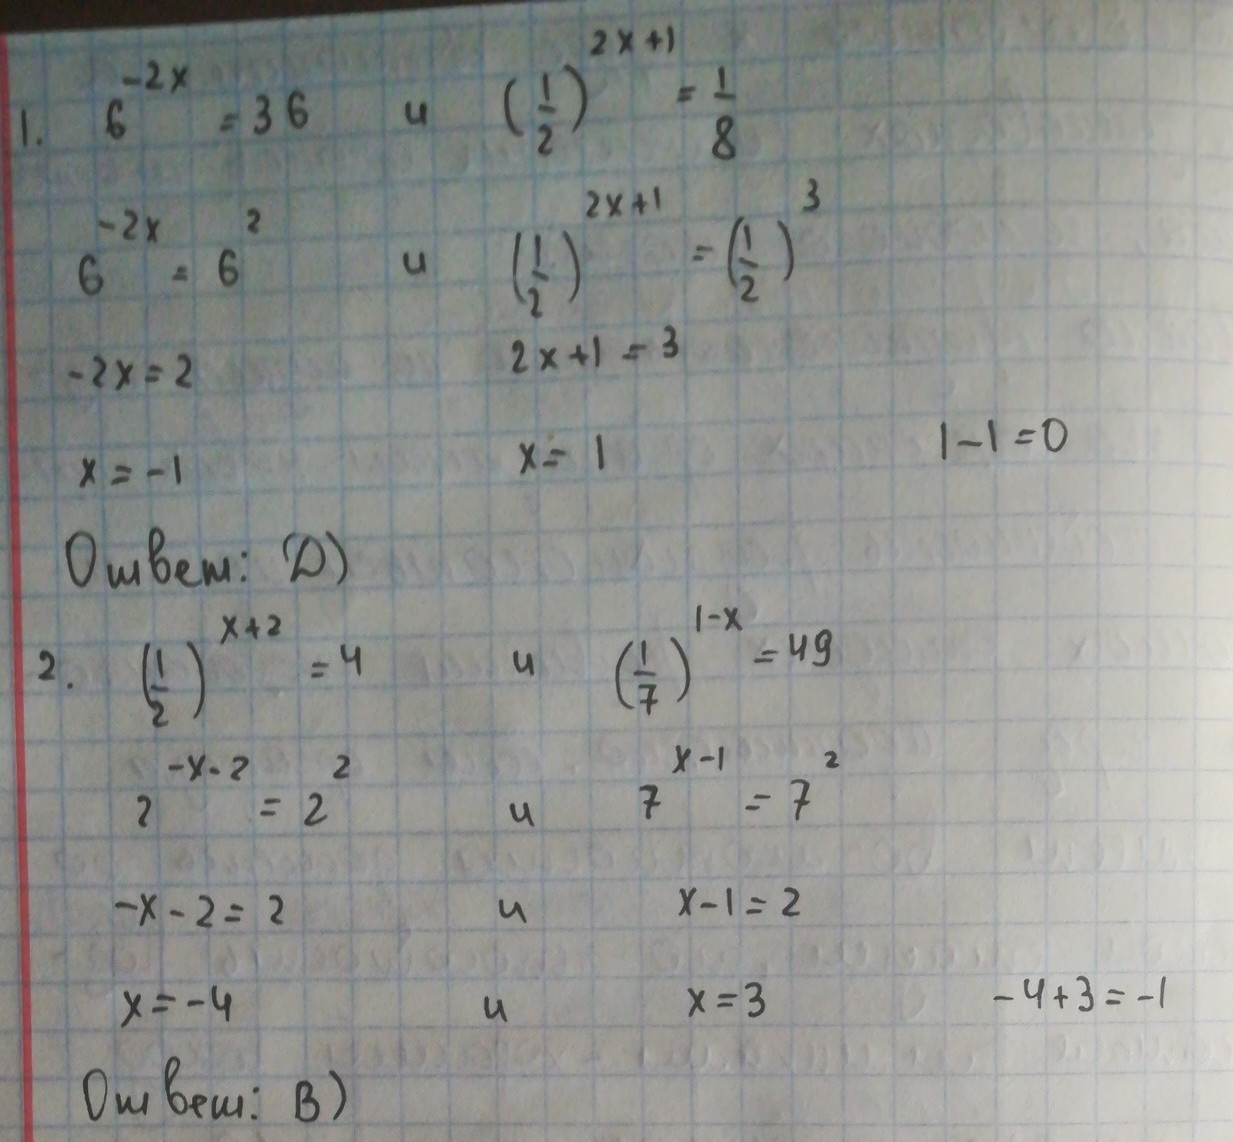 1. 6^{-2x} = 36 и (1/2)^{2x+1} = 1/8
6^{-2x} = 6^2 и (1/2)^{2x+1} = (1/2)^3
-2x = 2 2x+1 = 3
x = -1 x = 1 1-1=0
Ответ: D)
2. (1/2)^{x+2} = 4 и (1/7)^{1-x} = 49
2^{-x-2} = 2^2 и 7^{x-1} = 7^2
-x-2=2 и x-1=2
x=-4 и x=3 -4+3=-1
Ответ: B)